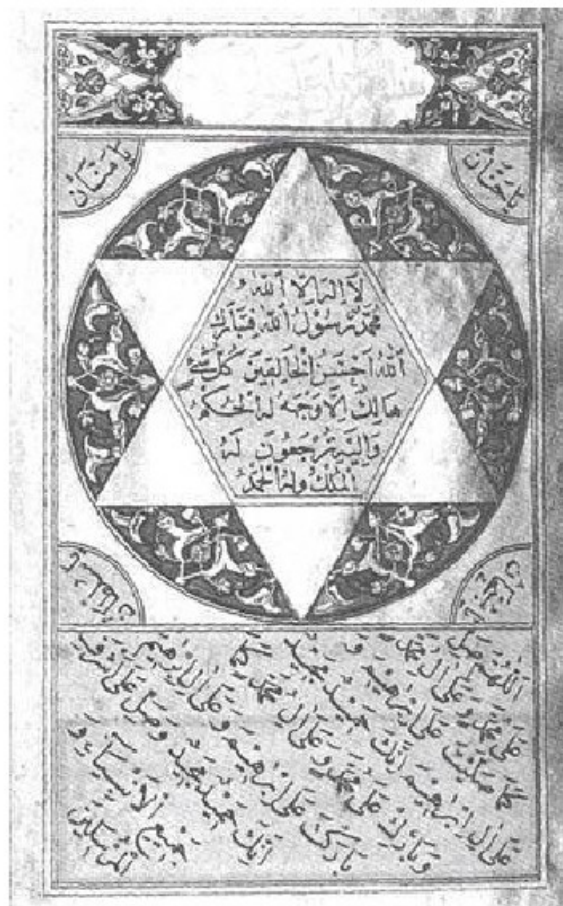 يا حنان
يا منان
لا اله الا الله
محمد رسول الله فتبارك
الله احسن الخالقين كل شئ
هالك الا وجهه له الحكم
واليه ترجعون له
الملك وله الحمد
يا سلطان
اللهم صل
على محمد وعلى ال محمد كما
صليت على ابرهيم و
على ال ابرهيم انك حميد مجيد
وبارك على محمد وعلى ال محمد كما
باركت على ابرهيم وعلى ال ابرهيم
انك حميد مجيد وصل على اشرف
جميع الانبياء و
المرسلين